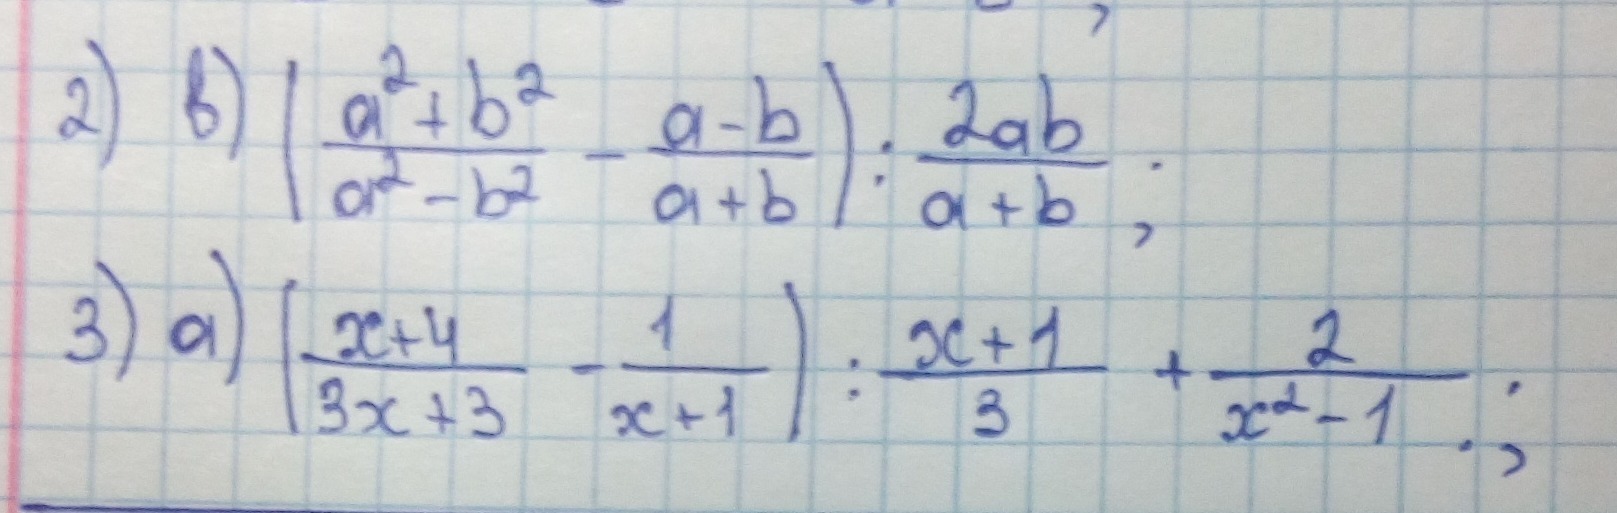 2) в) ( (a² + b²)/(a² - b²) - (a - b)/(a + b) ) : 2ab/(a + b) ;
3) а) ( (x+4)/(3x+3) - 1/(x+1) ) : (x+1)/3 + 2/(x² - 1) . ;